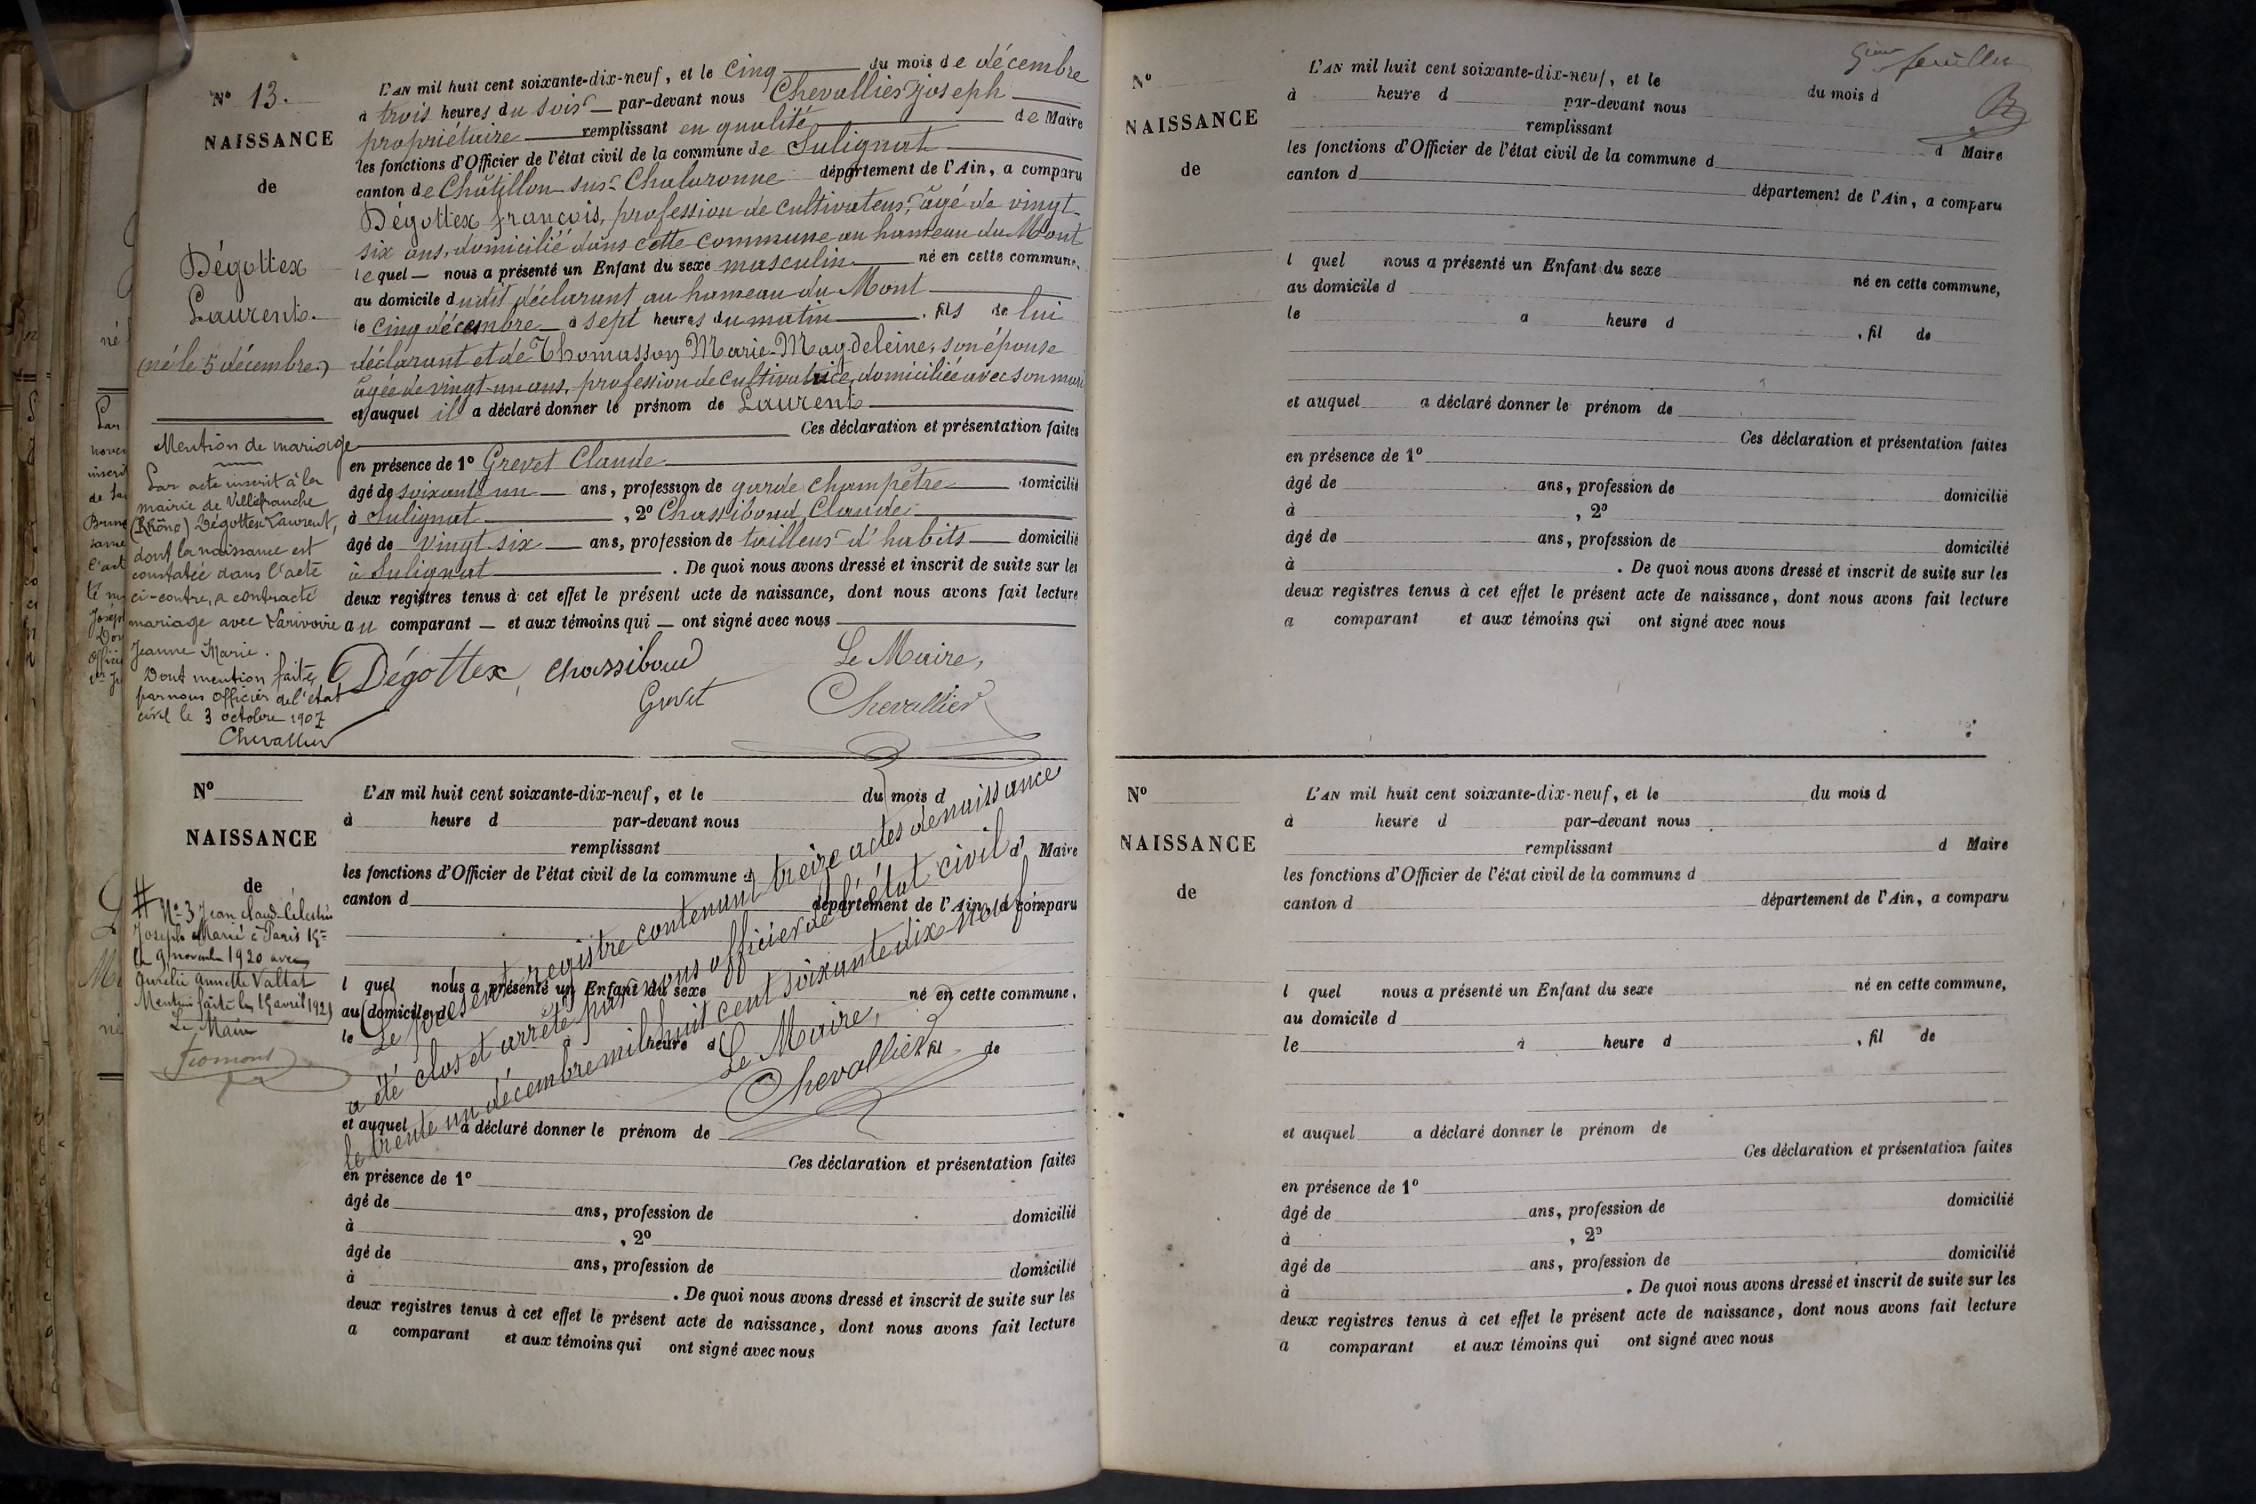 N° 13.
NAISSANCE
de
Dégottex
Laurent.
(né le 5 décembre.)
L'AN mil huit cent soixante-dix-neuf, et le cinq du mois de décembre
à trois heures du soir par-devant nous Chevallier Joseph
propriétaire remplissant en qualité de Maire
les fonctions d'Officier de l'état civil de la commune de Sulignat
canton de Châtillon-sur-Chalaronne département de l'Ain, a comparu
Dégottex françois, profession de cultivateur, âgé de vingt-
six ans, domicilié dans cette commune au hameau du Mont
lequel — nous a présenté un Enfant du sexe masculin né en cette commune,
au domicile dudit déclarant au hameau du Mont
le cinq décembre à sept heures du matin, fils de lui
déclarant et de Thomasson Marie-Magdeleine, son épouse
âgée de vingt-un ans, profession de cultivatrice, domiciliée avec son mari
et auquel il a déclaré donner le prénom de Laurent
Ces déclaration et présentation faites
en présence de 1° Grevet Claude
âgé de soixante un ans, profession de garde champêtre domicilié
à Sulignat, 2° Chassiboud Claude
âgé de vingt six ans, profession de tailleur d'habits domicilié
à Sulignat. De quoi nous avons dressé et inscrit de suite sur les
deux registres tenus à cet effet le présent acte de naissance, dont nous avons fait lecture
au comparant — et aux témoins qui — ont signé avec nous
Dégottex, Chassiboud Le Maire,
Grevet Chevallier
Mention de mariage
Par acte inscrit à la
mairie de Villefranche
(Rhône) Dégottex Laurent,
dont la naissance est
constatée dans l'acte
ci-contre, a contracté
mariage avec Larivoire
Jeanne Marie.
Dont mention faite,
par nous Officier de l'état
civil le 3 octobre 1907
Chevallier
N°
NAISSANCE
de
# N° 3 Jean Claude Célestin
Joseph Marié à Paris 15e
le 9 novembre 1920 avec
Aurélie Annette Valtat
Mention faite le 15 avril 1921
Le Maire
L'AN mil huit cent soixante-dix-neuf, et le du mois d
à heure d par-devant nous
remplissant d Maire
les fonctions d'Officier de l'état civil de la commune d
canton d département de l'Ain, a comparu
l quel nous a présenté un Enfant du sexe né en cette commune,
au domicile d
le à heure d , fil de
et auquel a déclaré donner le prénom de
Ces déclaration et présentation faites
en présence de 1°
âgé de ans, profession de domicilié
à , 2°
âgé de ans, profession de domicilié
à . De quoi nous avons dressé et inscrit de suite sur les
deux registres tenus à cet effet le présent acte de naissance, dont nous avons fait lecture
a comparant et aux témoins qui ont signé avec nous
Le présent registre contenant treize actes de naissance
a été clos et arrêté par nous officier de l'état civil
le trente un décembre mil huit cent soixante dix-neuf
Le Maire,
Chevallier
feuillet
N°
NAISSANCE
de
L'AN mil huit cent soixante-dix-neuf, et le du mois d
à heure d par-devant nous
remplissant d Maire
les fonctions d'Officier de l'état civil de la commune d
canton d département de l'Ain, a comparu
l quel nous a présenté un Enfant du sexe né en cette commune,
au domicile d
le à heure d , fil de
et auquel a déclaré donner le prénom de
Ces déclaration et présentation faites
en présence de 1°
âgé de ans, profession de domicilié
à , 2°
âgé de ans, profession de domicilié
à . De quoi nous avons dressé et inscrit de suite sur les
deux registres tenus à cet effet le présent acte de naissance, dont nous avons fait lecture
a comparant et aux témoins qui ont signé avec nous
N°
NAISSANCE
de
L'AN mil huit cent soixante-dix-neuf, et le du mois d
à heure d par-devant nous
remplissant d Maire
les fonctions d'Officier de l'état civil de la commune d
canton d département de l'Ain, a comparu
l quel nous a présenté un Enfant du sexe né en cette commune,
au domicile d
le à heure d , fil de
et auquel a déclaré donner le prénom de
Ces déclaration et présentation faites
en présence de 1°
âgé de ans, profession de domicilié
à , 2°
âgé de ans, profession de domicilié
à . De quoi nous avons dressé et inscrit de suite sur les
deux registres tenus à cet effet le présent acte de naissance, dont nous avons fait lecture
a comparant et aux témoins qui ont signé avec nous